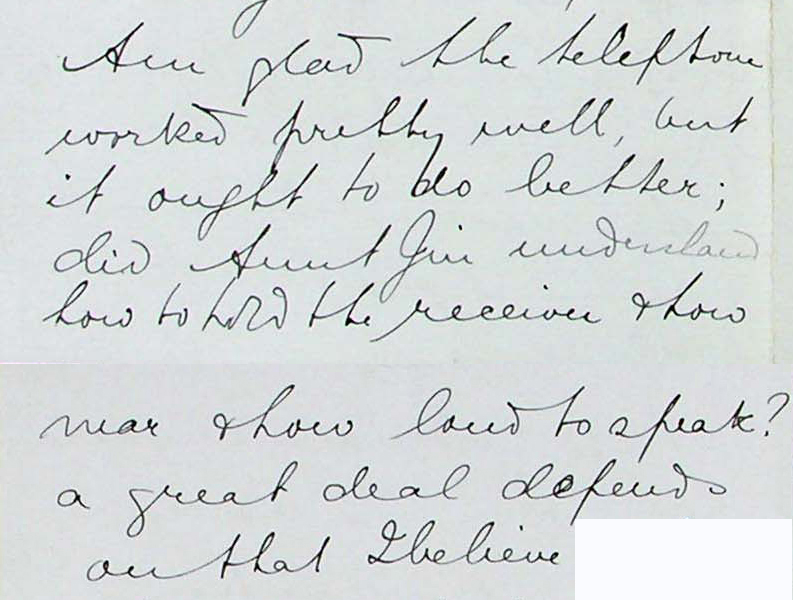 Am glad the telephone
worked pretty well, but
it ought to do better;
did Aunt Jin understand
how to hold the receiver & how
near & how loud to speak?
a great deal depends
on that I believe